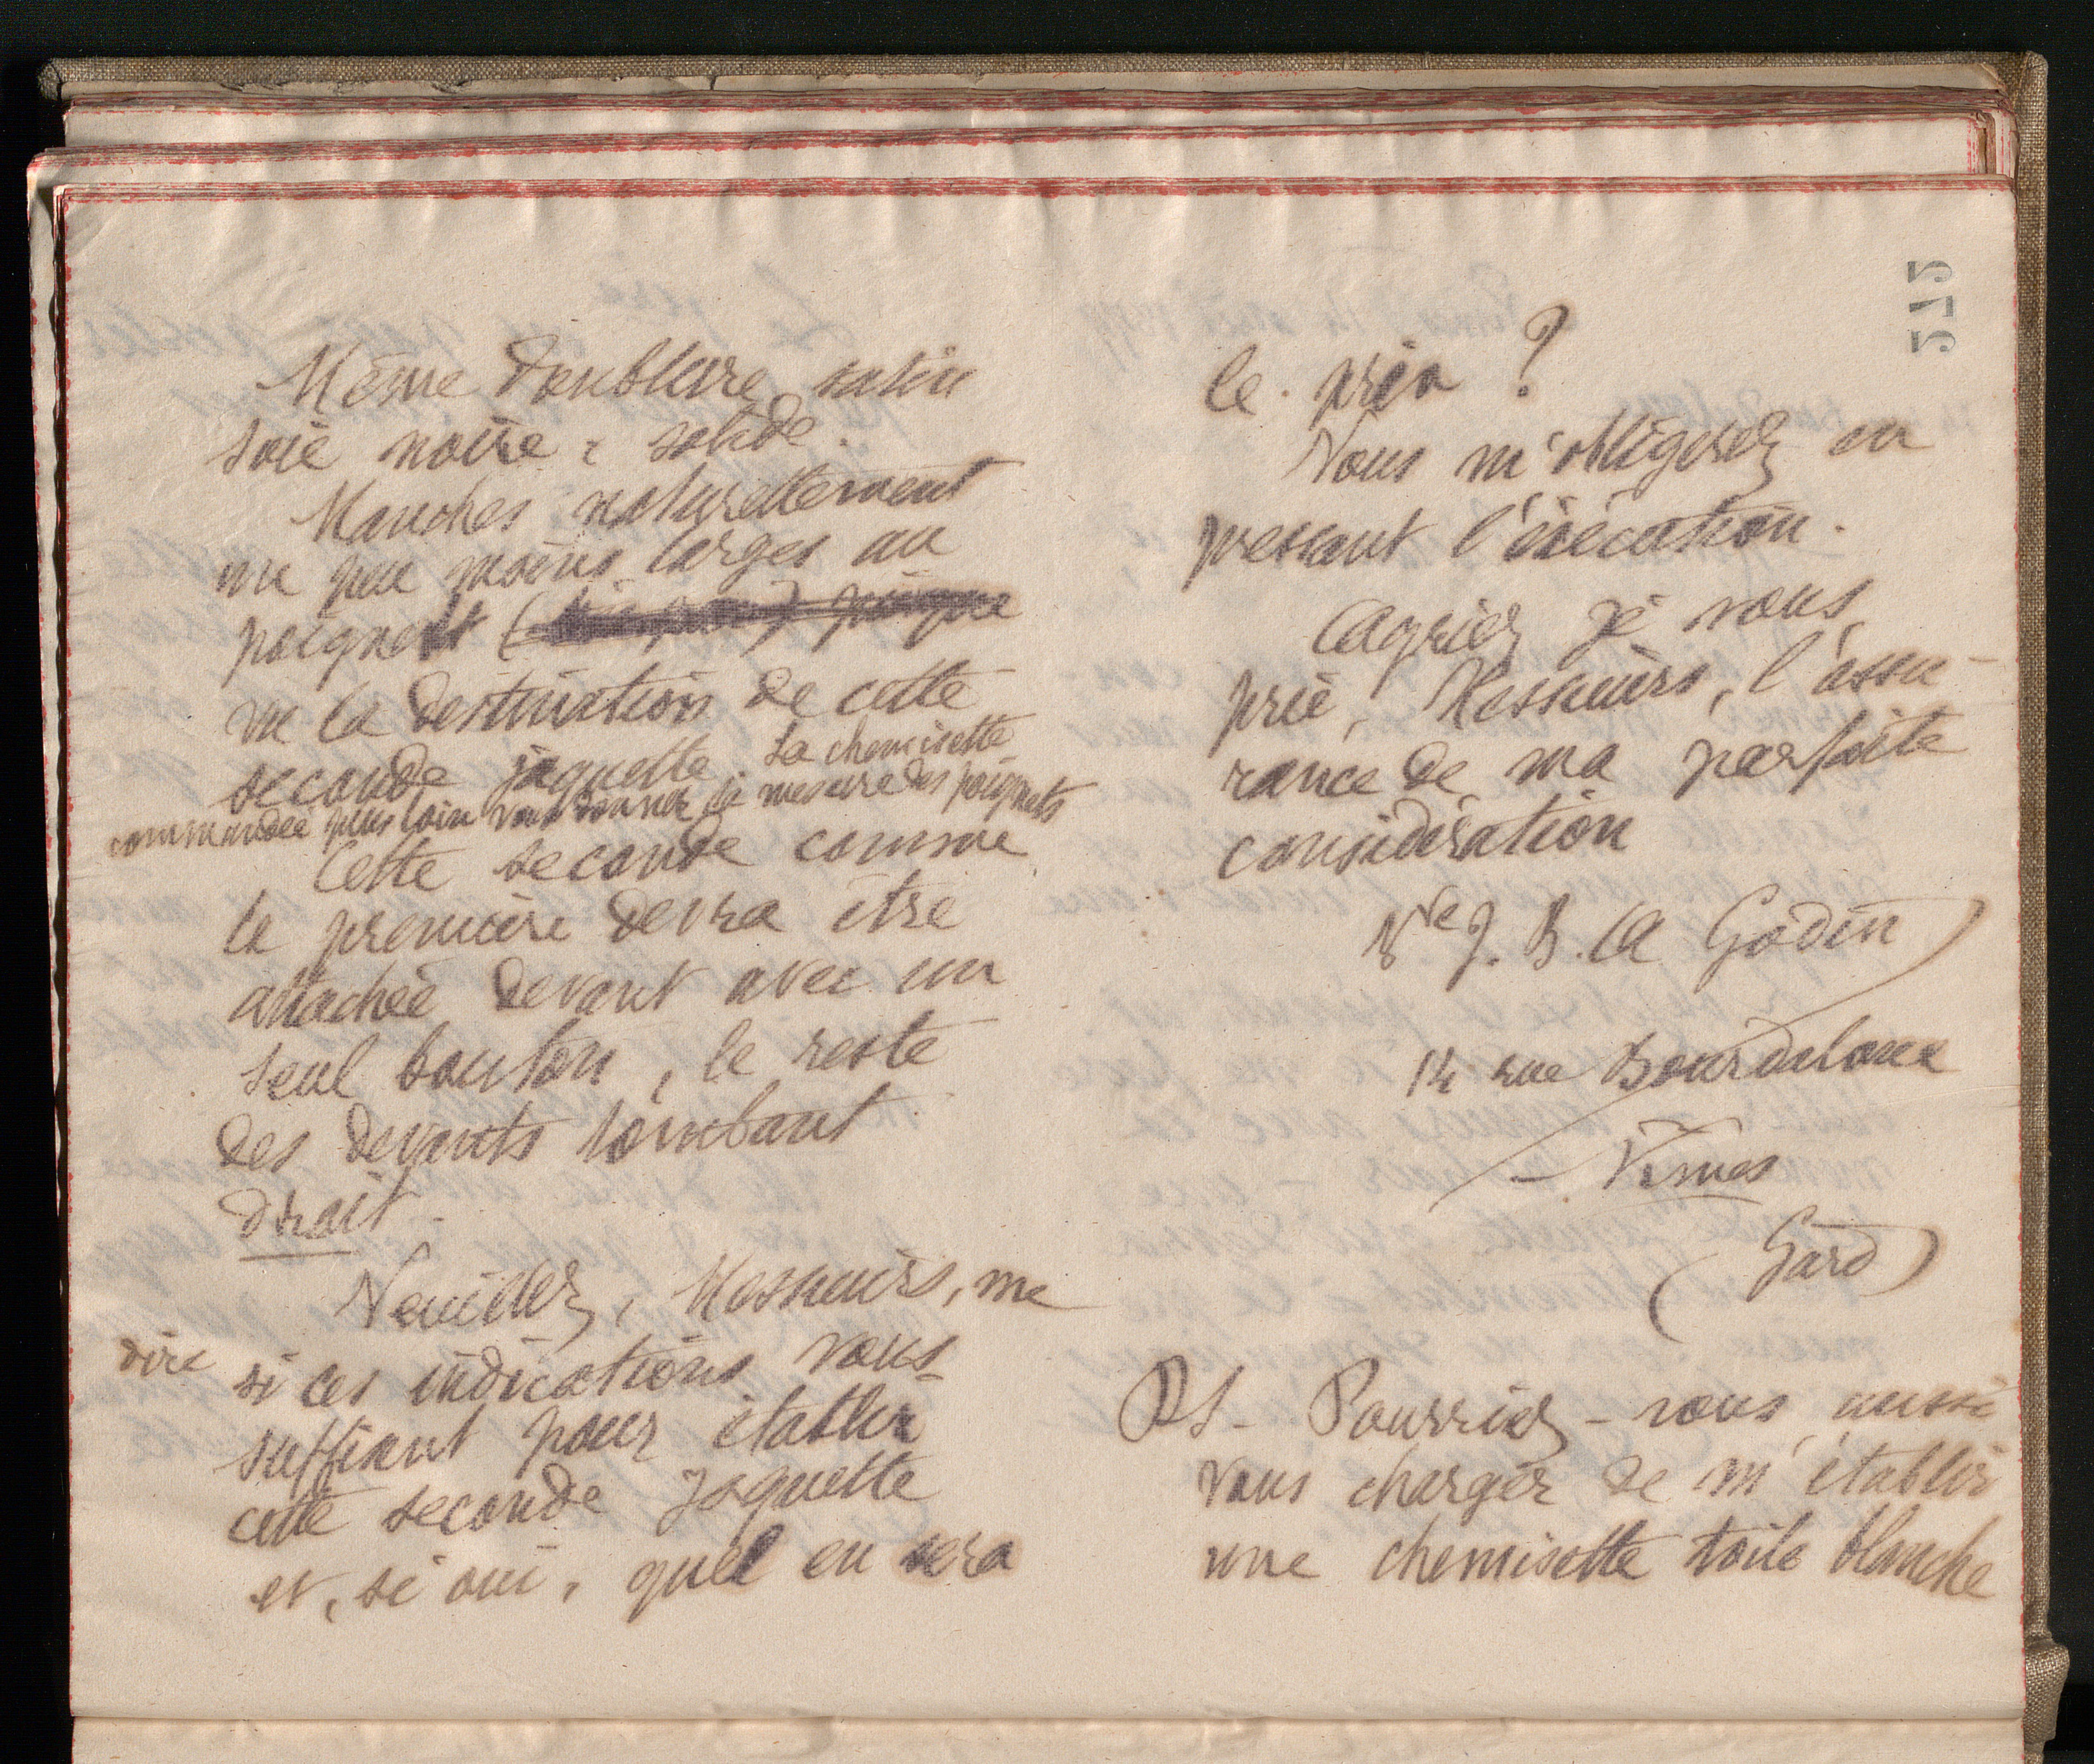 Même doublure, satin
soie noire, solide.
Manches naturellement
un peu moins larges au
poignet
vu la destination de cette
seconde jaquette. La chemisette
commandée plus loin vous donnera la mesure des poignets
Cette seconde comme
la première devra être
attachée devant avec un
seul bouton, le reste
des devants tombant
droit.
Veuillez, Messieurs, me
dire si ces indications vous
suffisent pour établir
cette seconde jaquette
et, si oui, quel en sera
le prix ?
Vous m'obligerez en
pressant l'exécution.
Agréez je vous
prie, Messieurs, l'assu-
rance de ma parfaite
considération
Vve J. B. A Godin
14 rue Bourdaloue
- Nîmes
(Gard)
PS - Pourriez-vous aussi
vous charger de m'établir
une chemisette toile blanche
525